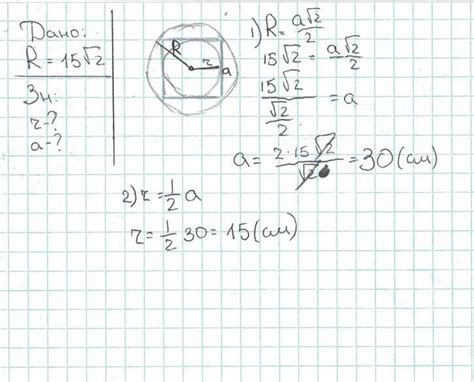 Дано:
R = 15√2
Зн:
r-?
a-?
R
r
a
1) R = a√2/2
15√2 = a√2/2
15√2/(√2/2) = a
a = 2·15√2/√2 = 30 (см)
2) r = 1/2 a
r = 1/2 30 = 15 (см)